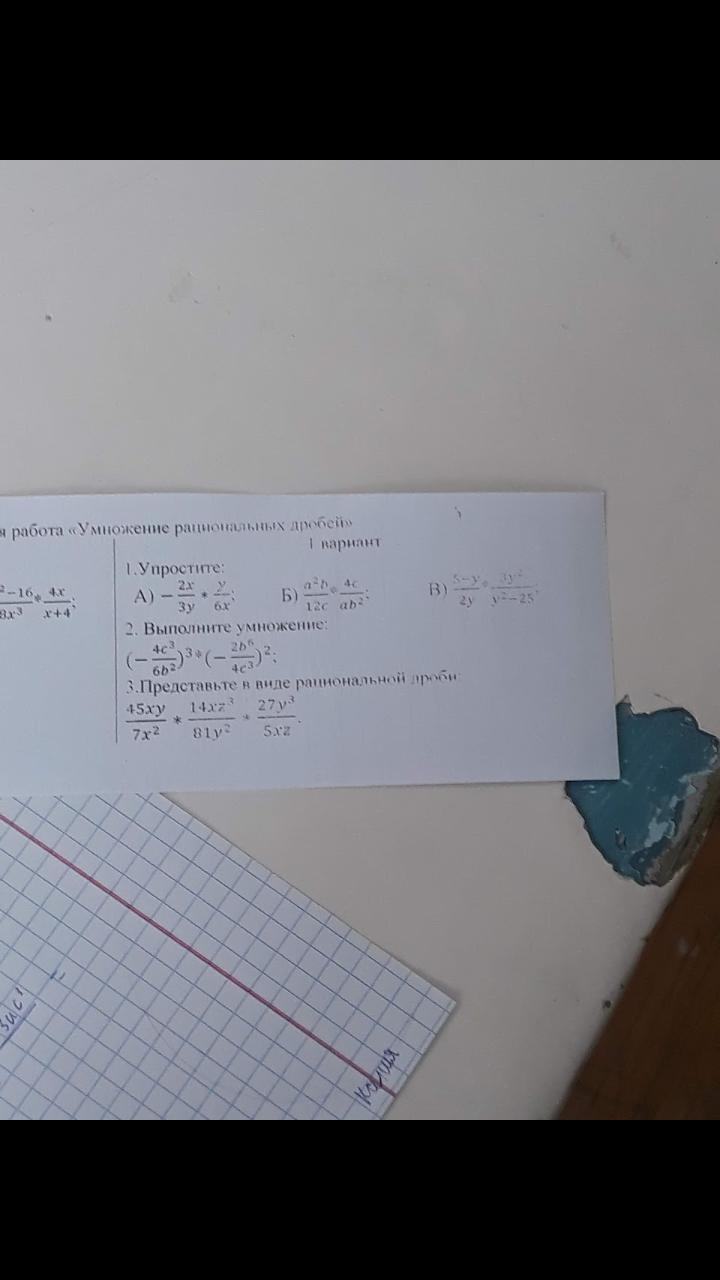 я работа «Умножение рациональных дробей»
1 вариант
1.Упростите:
²−16/8x³ * 4x/x+4;
А) −2x/3y * y/6x; Б) a²b/12c * 4c/ab²; В) 5−y/2y * 3y²/y²−25;
2. Выполните умножение:
(−4c³/6b²)³*(−2b⁶/4c³)²;
3.Представьте в виде рациональной дроби:
45xy/7x² * 14xz³/81y² * 27y³/5xz.